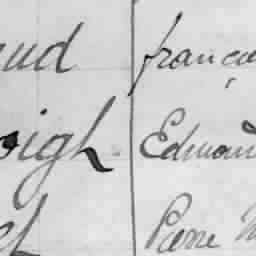 aud françai
oigh Edmond
et Pierre M